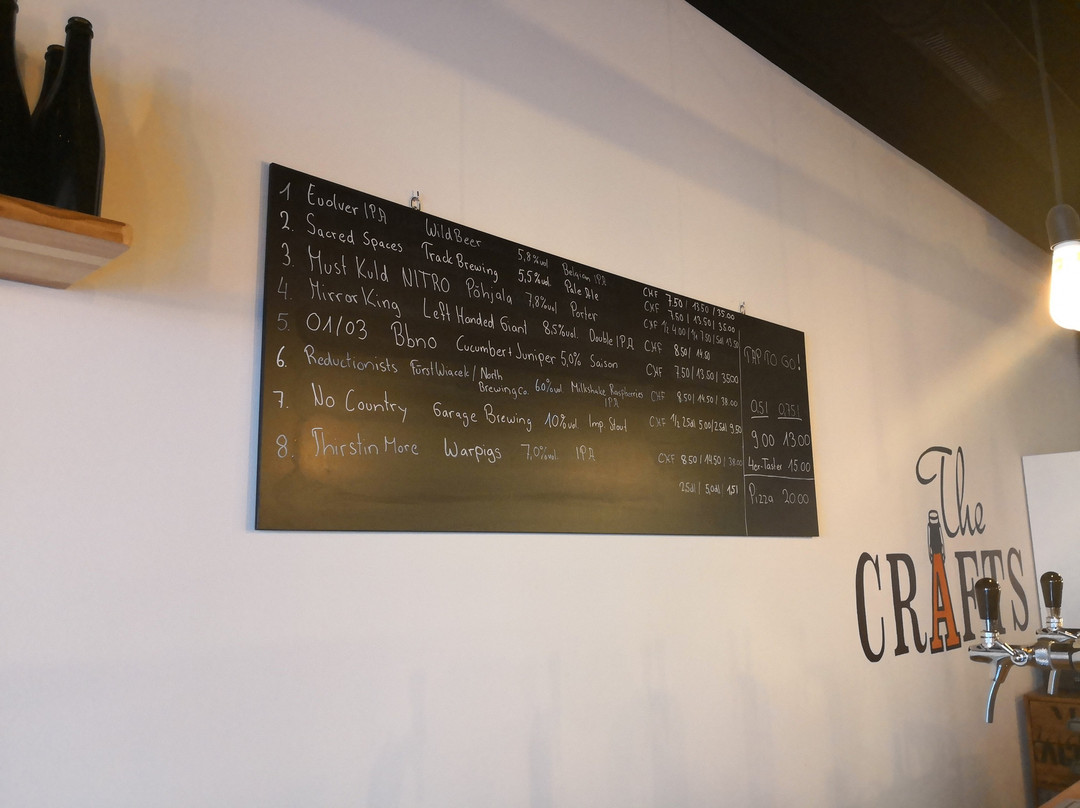 1 Evolver IPA Wild Beer 5,8%vol Belgian IPA CHF 7.50 / 13.50 / 35.00
2. Sacred Spaces Track Brewing 5,5%vol. Pale Ale CHF 7.50 / 13.50 / 35.00
3. Must Kuld NITRO Põhjala 7,8%vol Porter CHF 1/2 4.00 / 1/1 7.50 / 5dl 13.50
4. Mirror King Left Handed Giant 8,5%vol. Double IPA CHF 8.50 / 14.50
5. 01/03 Bbno Cucumber + Juniper 5,0% Saison CHF 7.50 / 13.50 / 35.00
6. Reductionists FürstWiacek / North
Brewing Co. 6.0%vol Milkshake Raspberries CHF 8.50 / 14.50 / 38.00
IPA
7. No Country Garage Brewing 10%vol Imp. Stout CHF 1/2 25dl 5.00 / 25dl 9.50
8. Thirstin More Warpigs 7,0%vol. IPA CHF 8.50 / 14.50 / 38.00
2.5dl / 5,0dl / 1,5l
TAP TO GO!
0.5l 0,75l
9.00 13.00
4er-Taster 15.00
Pizza 20.00
The
CRAFTS